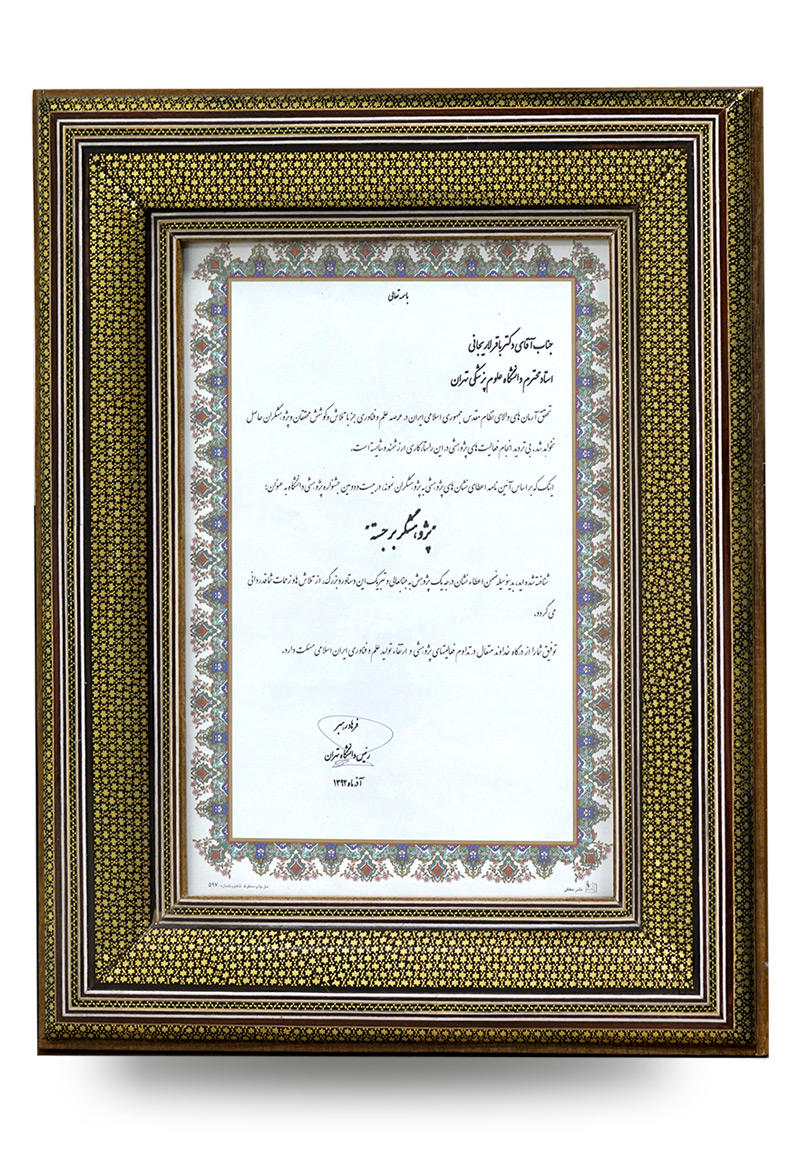 باسمه تعالی
جناب آقای دکتر باقر لاریجانی
استاد محترم دانشگاه علوم پزشکی تهران
تحقق آرمان های والای نظام مقدس جمهوری اسلامی ایران در عرصه علم و فناوری جز با تلاش و کوشش محققان و پژوهشگران حاصل
نخواهد شد. بی تردید انجام فعالیت های پژوهشی در این راستا، کاری ارزشمند و شایسته است.
اینک که بر اساس آئین نامه اعطای نشان های پژوهشی به پژوهشگران نمونه، در بیست و دومین جشنواره پژوهشی دانشگاه به عنوان:
"پژوهشگر برجسته"
شناخته شده اید، بدینوسیله ضمن اعطاء نشان درجه یک پژوهش به جنابعالی و تبریک این دستاورد بزرگ، از تلاش ها و زحمات شما قدردانی
می گردد.
توفیق شما را از درگاه خداوند متعال در تداوم فعالیتهای پژوهشی و ارتقاء تولید علم و فناوری ایران اسلامی مسئلت دارد.
فرهاد رهبر
رئیس دانشگاه تهران
آذر ماه ۱۳۹۲
حق چاپ محفوظ شماره: ۵۹۷
نشر حقیقی